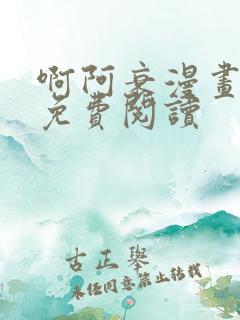 啊阿衰漫畫
免費閱讀
古正舉
未经同意禁止转载